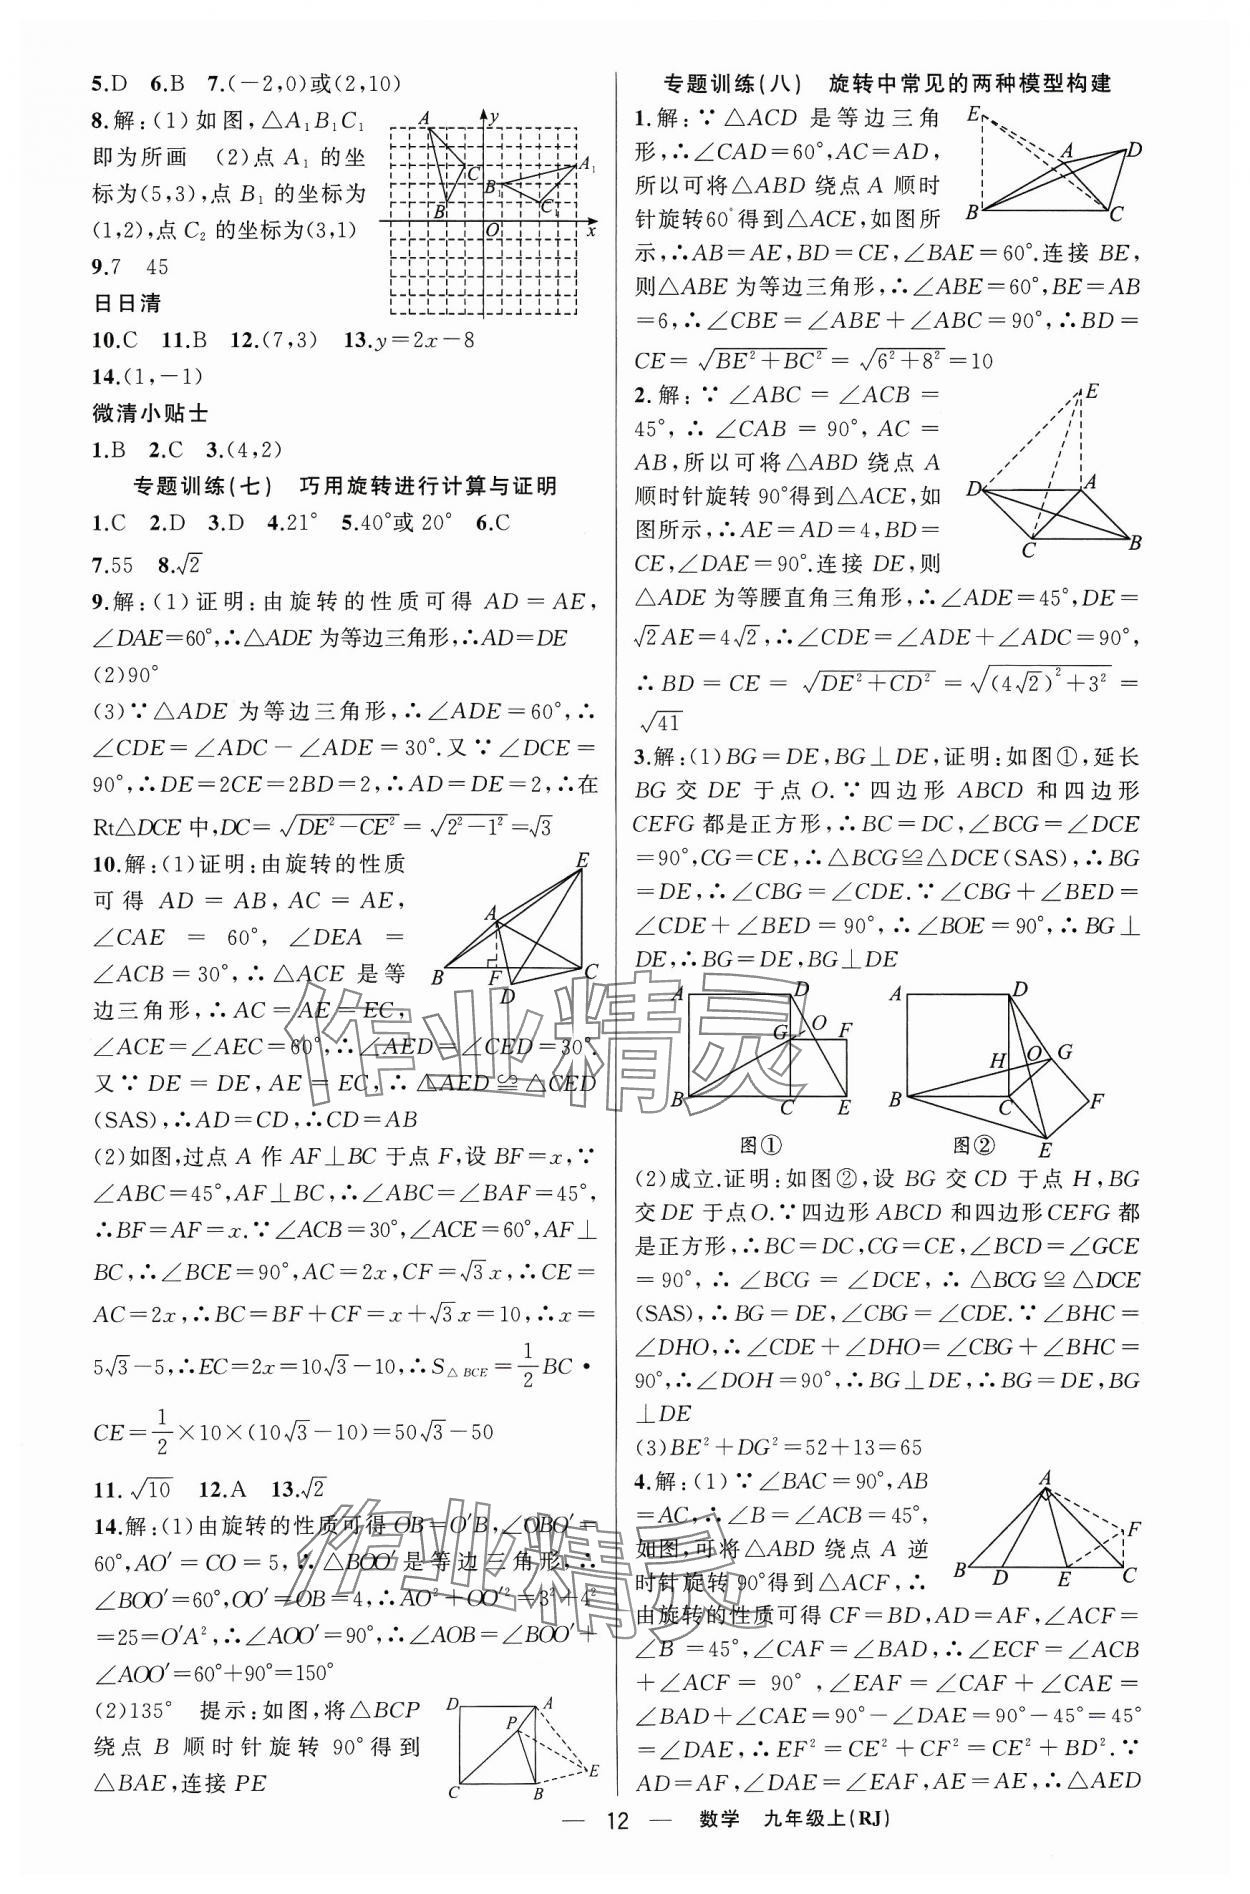 5.D 6.B 7.(-2,0)或(2,10)
8.解:(1)如图,△A₁B₁C₁
即为所画 (2)点 A₁ 的坐
标为(5,3),点 B₁ 的坐标为
(1,2),点 C₂ 的坐标为(3,1)
A y C A₁ B₁ B C₁ O x
9.7 45
日日清
10.C 11.B 12.(7,3) 13.y=2x-8
14.(1,-1)
微清小贴士
1.B 2.C 3.(4,2)
专题训练(七) 巧用旋转进行计算与证明
1.C 2.D 3.D 4.21° 5.40°或 20° 6.C
7.55 8.√2
9.解:(1)证明:由旋转的性质可得 AD=AE,
∠DAE=60°,∴△ADE 为等边三角形,∴AD=DE
(2)90°
(3)∵△ADE 为等边三角形,∴∠ADE=60°,∴
∠CDE=∠ADC-∠ADE=30°.又∵∠DCE=
90°,∴DE=2CE=2BD=2,∴AD=DE=2,∴在
Rt△DCE 中,DC=√(DE²-CE²)=√(2²-1²)=√3
10.解:(1)证明:由旋转的性质
可得 AD=AB,AC=AE,
∠CAE=60°,∠DEA=
∠ACB=30°,∴△ACE 是等
边三角形,∴AC=AE=EC,
E A B F D C
∠ACE=∠AEC=60°,∴∠AED=∠CED=30°.
又∵DE=DE,AE=EC,∴△AED≌△CED
(SAS),∴AD=CD,∴CD=AB
(2)如图,过点 A 作 AF⊥BC 于点 F,设 BF=x,∵
∠ABC=45°,AF⊥BC,∴∠ABC=∠BAF=45°,
∴BF=AF=x.∵∠ACB=30°,∠ACE=60°,AF⊥
BC,∴∠BCE=90°,AC=2x,CF=√3x,∴CE=
AC=2x,∴BC=BF+CF=x+√3x=10,∴x=
5√3-5,∴EC=2x=10√3-10,∴S△BCE=1/2BC·
CE=1/2×10×(10√3-10)=50√3-50
11.√10 12.A 13.√2
14.解:(1)由旋转的性质可得 OB=O′B,∠OBO′=
60°,AO′=CO=5,∴△BOO′是等边三角形,∴
∠BOO′=60°,OO′=OB=4,∴AO²+OO′²=3²+4²
=25=O′A²,∴∠AOO′=90°,∴∠AOB=∠BOO′+
∠AOO′=60°+90°=150°
(2)135° 提示:如图,将△BCP
绕点 B 顺时针旋转 90°得到
△BAE,连接 PE
D A P E C B
专题训练(八) 旋转中常见的两种模型构建
1.解:∵△ACD 是等边三角
形,∴∠CAD=60°,AC=AD,
所以可将△ABD 绕点 A 顺时
针旋转60°得到△ACE,如图所
E A D B C
示,∴AB=AE,BD=CE,∠BAE=60°.连接 BE,
则△ABE 为等边三角形,∴∠ABE=60°,BE=AB
=6,∴∠CBE=∠ABE+∠ABC=90°,∴BD=
CE=√(BE²+BC²)=√(6²+8²)=10
2.解:∵∠ABC=∠ACB=
45°,∴∠CAB=90°,AC=
AB,所以可将△ABD 绕点 A
顺时针旋转 90°得到△ACE,如
图所示,∴AE=AD=4,BD=
CE,∠DAE=90°.连接 DE,则
E D A C B
△ADE 为等腰直角三角形,∴∠ADE=45°,DE=
√2AE=4√2,∴∠CDE=∠ADE+∠ADC=90°,
∴BD=CE=√(DE²+CD²)=√((4√2)²+3²)=
√41
3.解:(1)BG=DE,BG⊥DE,证明:如图①,延长
BG 交 DE 于点 O.∵四边形 ABCD 和四边形
CEFG 都是正方形,∴BC=DC,∠BCG=∠DCE
=90°,CG=CE,∴△BCG≌△DCE(SAS),∴BG
=DE,∴∠CBG=∠CDE.∵∠CBG+∠BED=
∠CDE+∠BED=90°,∴∠BOE=90°,∴BG⊥
DE,∴BG=DE,BG⊥DE
A D G O F B C E
图①
A D H O G B C F E
图②
(2)成立.证明:如图②,设 BG 交 CD 于点 H,BG
交DE 于点O.∵四边形 ABCD 和四边形CEFG 都
是正方形,∴BC=DC,CG=CE,∠BCD=∠GCE
=90°,∴∠BCG=∠DCE,∴△BCG≌△DCE
(SAS),∴BG=DE,∠CBG=∠CDE.∵∠BHC=
∠DHO,∴∠CDE+∠DHO=∠CBG+∠BHC=
90°,∴∠DOH=90°,∴BG⊥DE,∴BG=DE,BG
⊥DE
(3)BE²+DG²=52+13=65
4.解:(1)∵∠BAC=90°,AB
=AC,∴∠B=∠ACB=45°,
如图,可将△ABD 绕点 A 逆
时针旋转 90°得到△ACF,∴
A F B D E C
由旋转的性质可得 CF=BD,AD=AF,∠ACF=
∠B=45°,∠CAF=∠BAD,∴∠ECF=∠ACB
+∠ACF=90°,∠EAF=∠CAF+∠CAE=
∠BAD+∠CAE=90°-∠DAE=90°-45°=45°
=∠DAE,∴EF²=CE²+CF²=CE²+BD².∵
AD=AF,∠DAE=∠EAF,AE=AE,∴△AED
作业精灵
作业精灵
— 12 — 数学 九年级上(RJ)